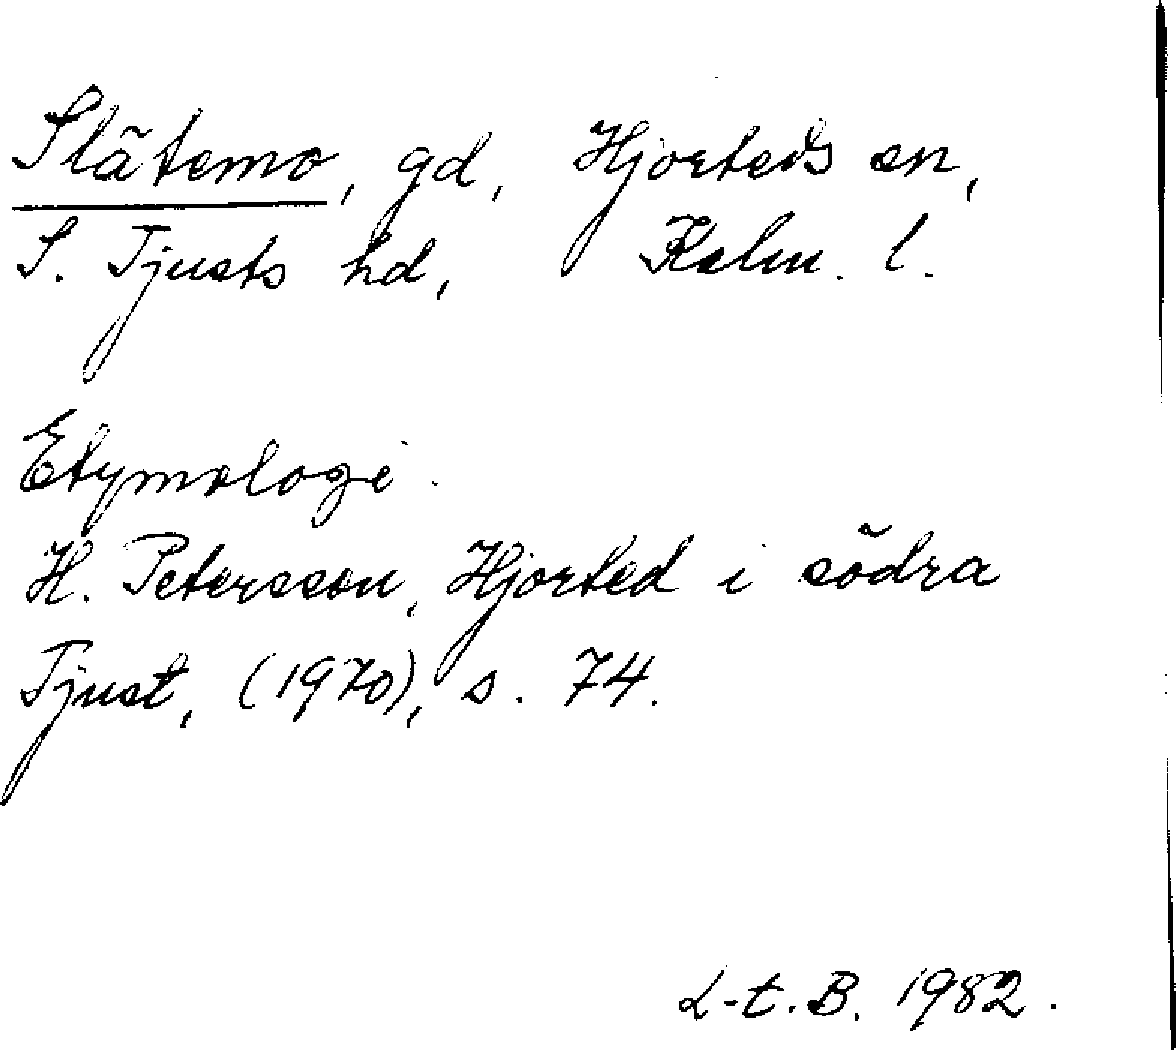 Slätemo, gd, Hjorteds sn,
S. Tjusts hd, Kalm. l.
Etymologi.
H. Petersson, Hjorted i södra
Tjust, (1970), s. 74.
L-t. B. 1982.